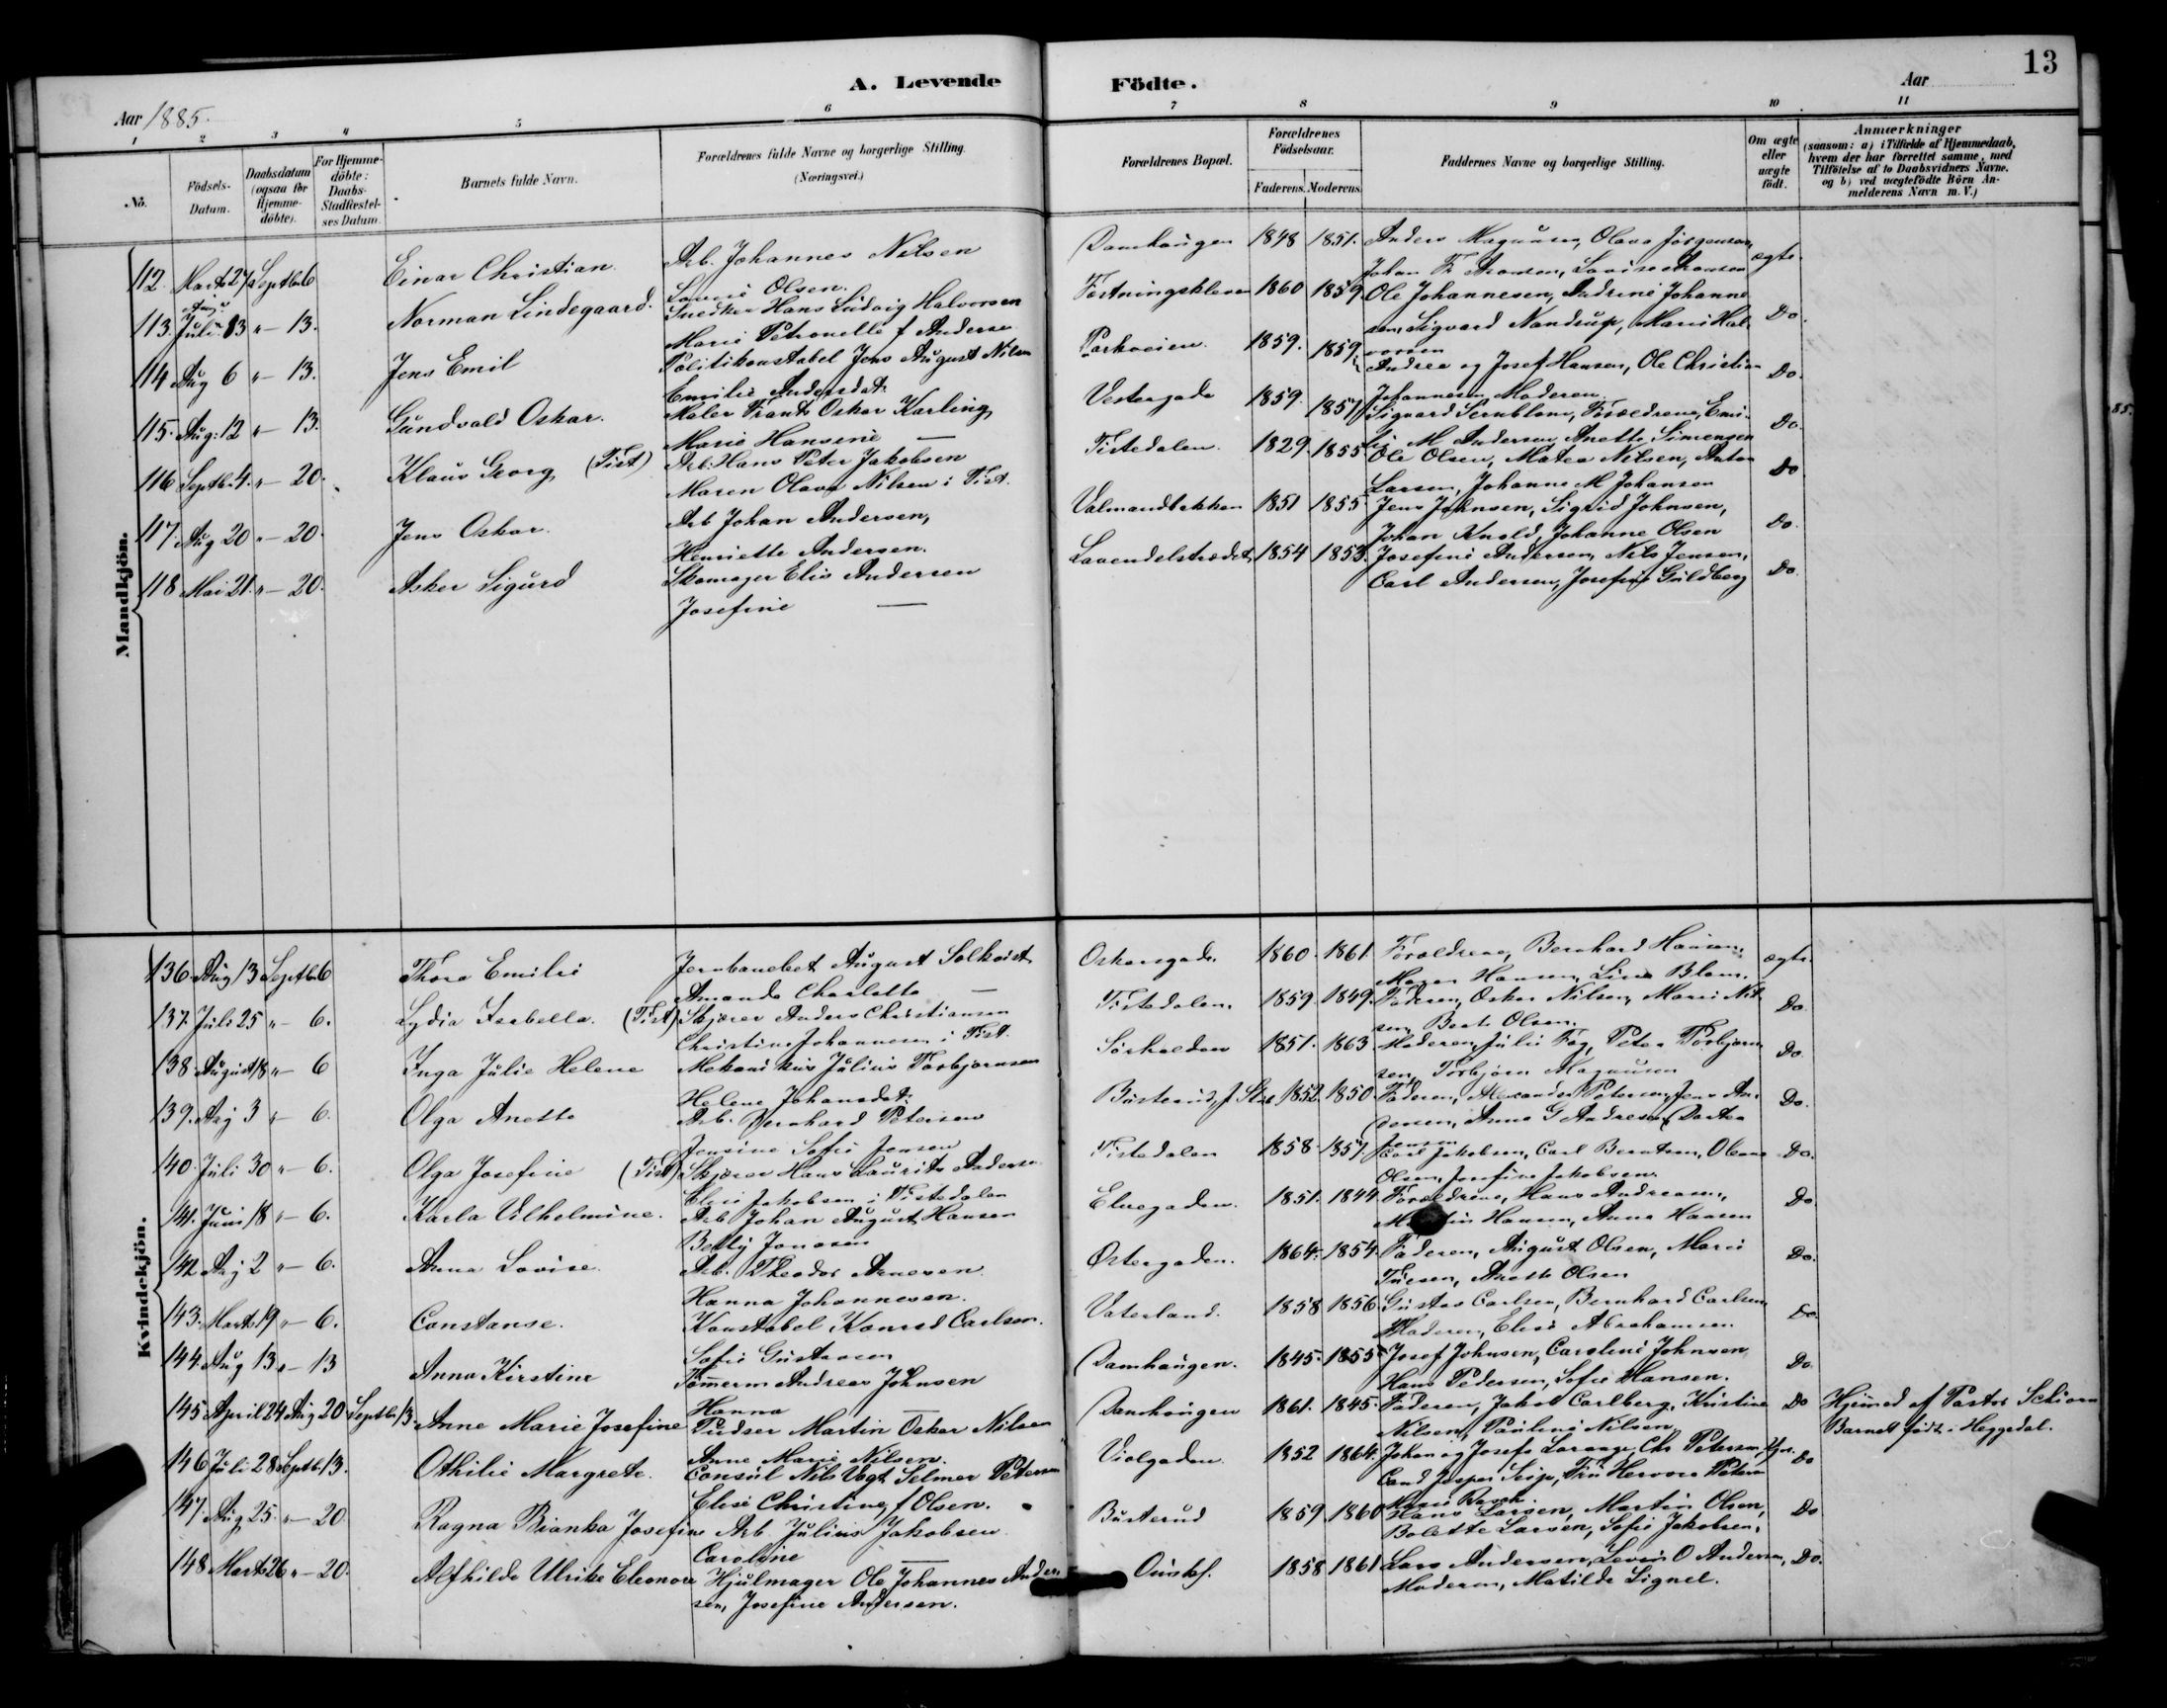 A. Levende
Födte.
13
Aar 1885.
Aar
1 2 3 4 5 6 7 8 9 10 11
No.
Födsels-
Datum.
Daabsdatum
(ogsaa for
Hjemme-
döbte).
For Hjemme-
döbte:
Daabs-
Stadfæstel-
ses Datum.
Barnets fulde Navn.
Forældrenes fulde Navne og borgerlige Stilling.
(Næringsvei.)
Forældrenes Bopæl.
Forældrenes
Födselsaar.
Faderens. Moderens.
Faddernes Navne og borgerlige Stilling.
Om ægte
eller
uægte
födt.
Anmærkninger
(saasom: a) i Tilfælde af Hjemmedaab,
hvem der har forrettet samme, med
Tilföielse af to Daabsvidners Navne.
og b) ved uægtefödte Börn An-
melderens Navn m. V.)
Mandkjön.
112. Marts 27 Septbr 6 Einar Christian. Arb. Johannes Nilsen
Olsen.
Damhaugen 1848 1851. Anders Magnussen, Olava Jörgensen,
Johan Fr Aronsen, Lovise Aronsen ægte.
113. Juli 13 " — 13. Norman Lindegaard. Snedker Hans Ludvig Halvorsen
Marie Petronelle f Anderse
1860 1859. Ole Johannesen, Andrine Johanne
sen, Sigvard Nandrup, Marie Hal
vorsen Do.
114 Aug 6 " — 13. Jens Emil Politikonstabel Jens August Nilsen
Emilie Andersdatr
Parkveien. 1859. 1859. Andrea og Josef Hansen, Ole Christian
Johannesen, Moderen. Do.
115. Aug. 12 " — 13. Gundvald Oskar. Maler Frants Oskar Karling
Marie Hansine —
Vestergade 1859. 1857 Sigvard Sernblom, Forældrene, Emi-
lie M Andersen, Anette Simensen Do.
116 Septbr 4. " — 20. Klaus Georg (Tist) Arb. Hans Peter Jakobsen
Maren Olava Nilsen i Tist.
Tistedalen. 1829. 1855 Ole Olsen, Matea Nilsen, Anton
Larsen, Johanne M Johansen Do
117. Aug 20 " — 20. Jens Oskar. Arb Johan Andersen,
Henriette Andersen.
Valmandbakken 1851 1855. Jens Johnsen, Sigrid Johnsen,
Johan Knold, Johanne Olsen Do.
118 Mai 21. " — 20. Asker Sigurd Skomager Elis Andersen
Josefine —
Lavendelstrædet 1854 1853. Josefine Andersen, Nils Jensen,
Carl Andersen, Josefine Guldberg Do.
Kvindekjön.
136 Aug 13 Septbr 6 Thora Emilie Jernbanebet. August Solkvist
Amanda Charlotte —
Oskarsgade. 1860. 1861 Forældrene, Bernhard Hansen,
Maren Hansen, Lina Blom. ægte.
137. Juli 25 " — 6. Lydia Isabella. (Tist) Skjærer Anders Christiansen
Christine Johannesen i Tist.
Tistedalen. 1859. 1849. Faderen, Oskar Nilsen, Marie Nil
sen, Beate Olsen. Do.
138. August 18 " — 6 Inga Julie Helene Mekanikus Julius Torbjornsen
Helene Johansdatr.
Sörhalden 1857. 1863. Moderen, Julie Fog, Peter Torbjorn
sen, Torbjörn Magnusen Do.
139. Aug 3 " — 6. Olga Anette Arb. Bernhard Petersen
Jensine Sofie Jensen
1852. 1850. Faderen, Alexander Petersen, Jens An-
dersen, Anna G Andresen, Dortea
Jensen Do.
140. Juli 30 " — 6. Olga Josefine (Tist) Skjærer Hans Laurits Anderse
Elise Jakobsen i Tistedalen
Tistedalen 1858. 1857. Carl Jakobsen, Carl Berntsen, Olava
Olsen, Josefine Jakobsen. Do.
141. Juni 18 " — 6. Karla Vilhelmine. Arb Johan August Hansen
Betty Jonasen
Elvegaden. 1851. 1844. Forældrene, Hans Andreasen,
Hansen, Anna Hansen Do.
142. Aug 2 " — 6. Anna Lovise. Arb. Theodor Arnesen
Hanna Johannesen.
Østergaden. 1864. 1854. Faderen, August Olsen, Marie
Anette Olsen Do.
143. Marts 19 " — 6. Constanse. Konstabel Konrad Carlsen.
Sofie Gustavsen
Vaterland. 1858 1856. Gustav Carlsen, Bernhard Carlsen,
Moderen, Elise Abrahamsen Do.
144. Aug 13 " — 13 Anna Kirstine Tömerm Andreas Johnsen
Hanna —
Damhaugen. 1845. 1855 Josef Johnsen, Caroline Johnsen,
Hans Pedersen, Sofie Hansen. Do.
145 April 24 Aug 20 Septbr 13. Anne Marie Josefine Pudser Martin Oskar Nilsen
Anne Marie Nilsen.
Damhaugen 1861. 1845. Faderen, Jakob Carlberg, Kristine
Nilsen, Pauline Nilsen Do Hjemmed af Pastor Schiørn
Barnet födt i Heggedal.
146 Juli 28 Septbr 13. Othilie Margrete. Consul Nils Vogt Selmer Petersen
Elise Christine f Olsen.
Violgaden. 1852 1864. Johan og Josefa Lorange, Chr Petersen
Cand Jesper Seip, Petersen
Marie Do
147. Aug 25. " — 20 Ragna Bianka Josefine Arb. Julius Jakobsen
Caroline —
Busterud 1859. 1860 Hans Larsen, Martin Olsen,
Bolette Larsen, Sofie Jakobsen. Do
148 Marts 26 " — 20. Alfhilde Ulrike Eleonore Hjulmager Ole Johannes Ander
sen, Josefine Andersen.
1858 1861 Lars Andersen, O Andersen,
Moderen, Matilde Signel. Do.
85.